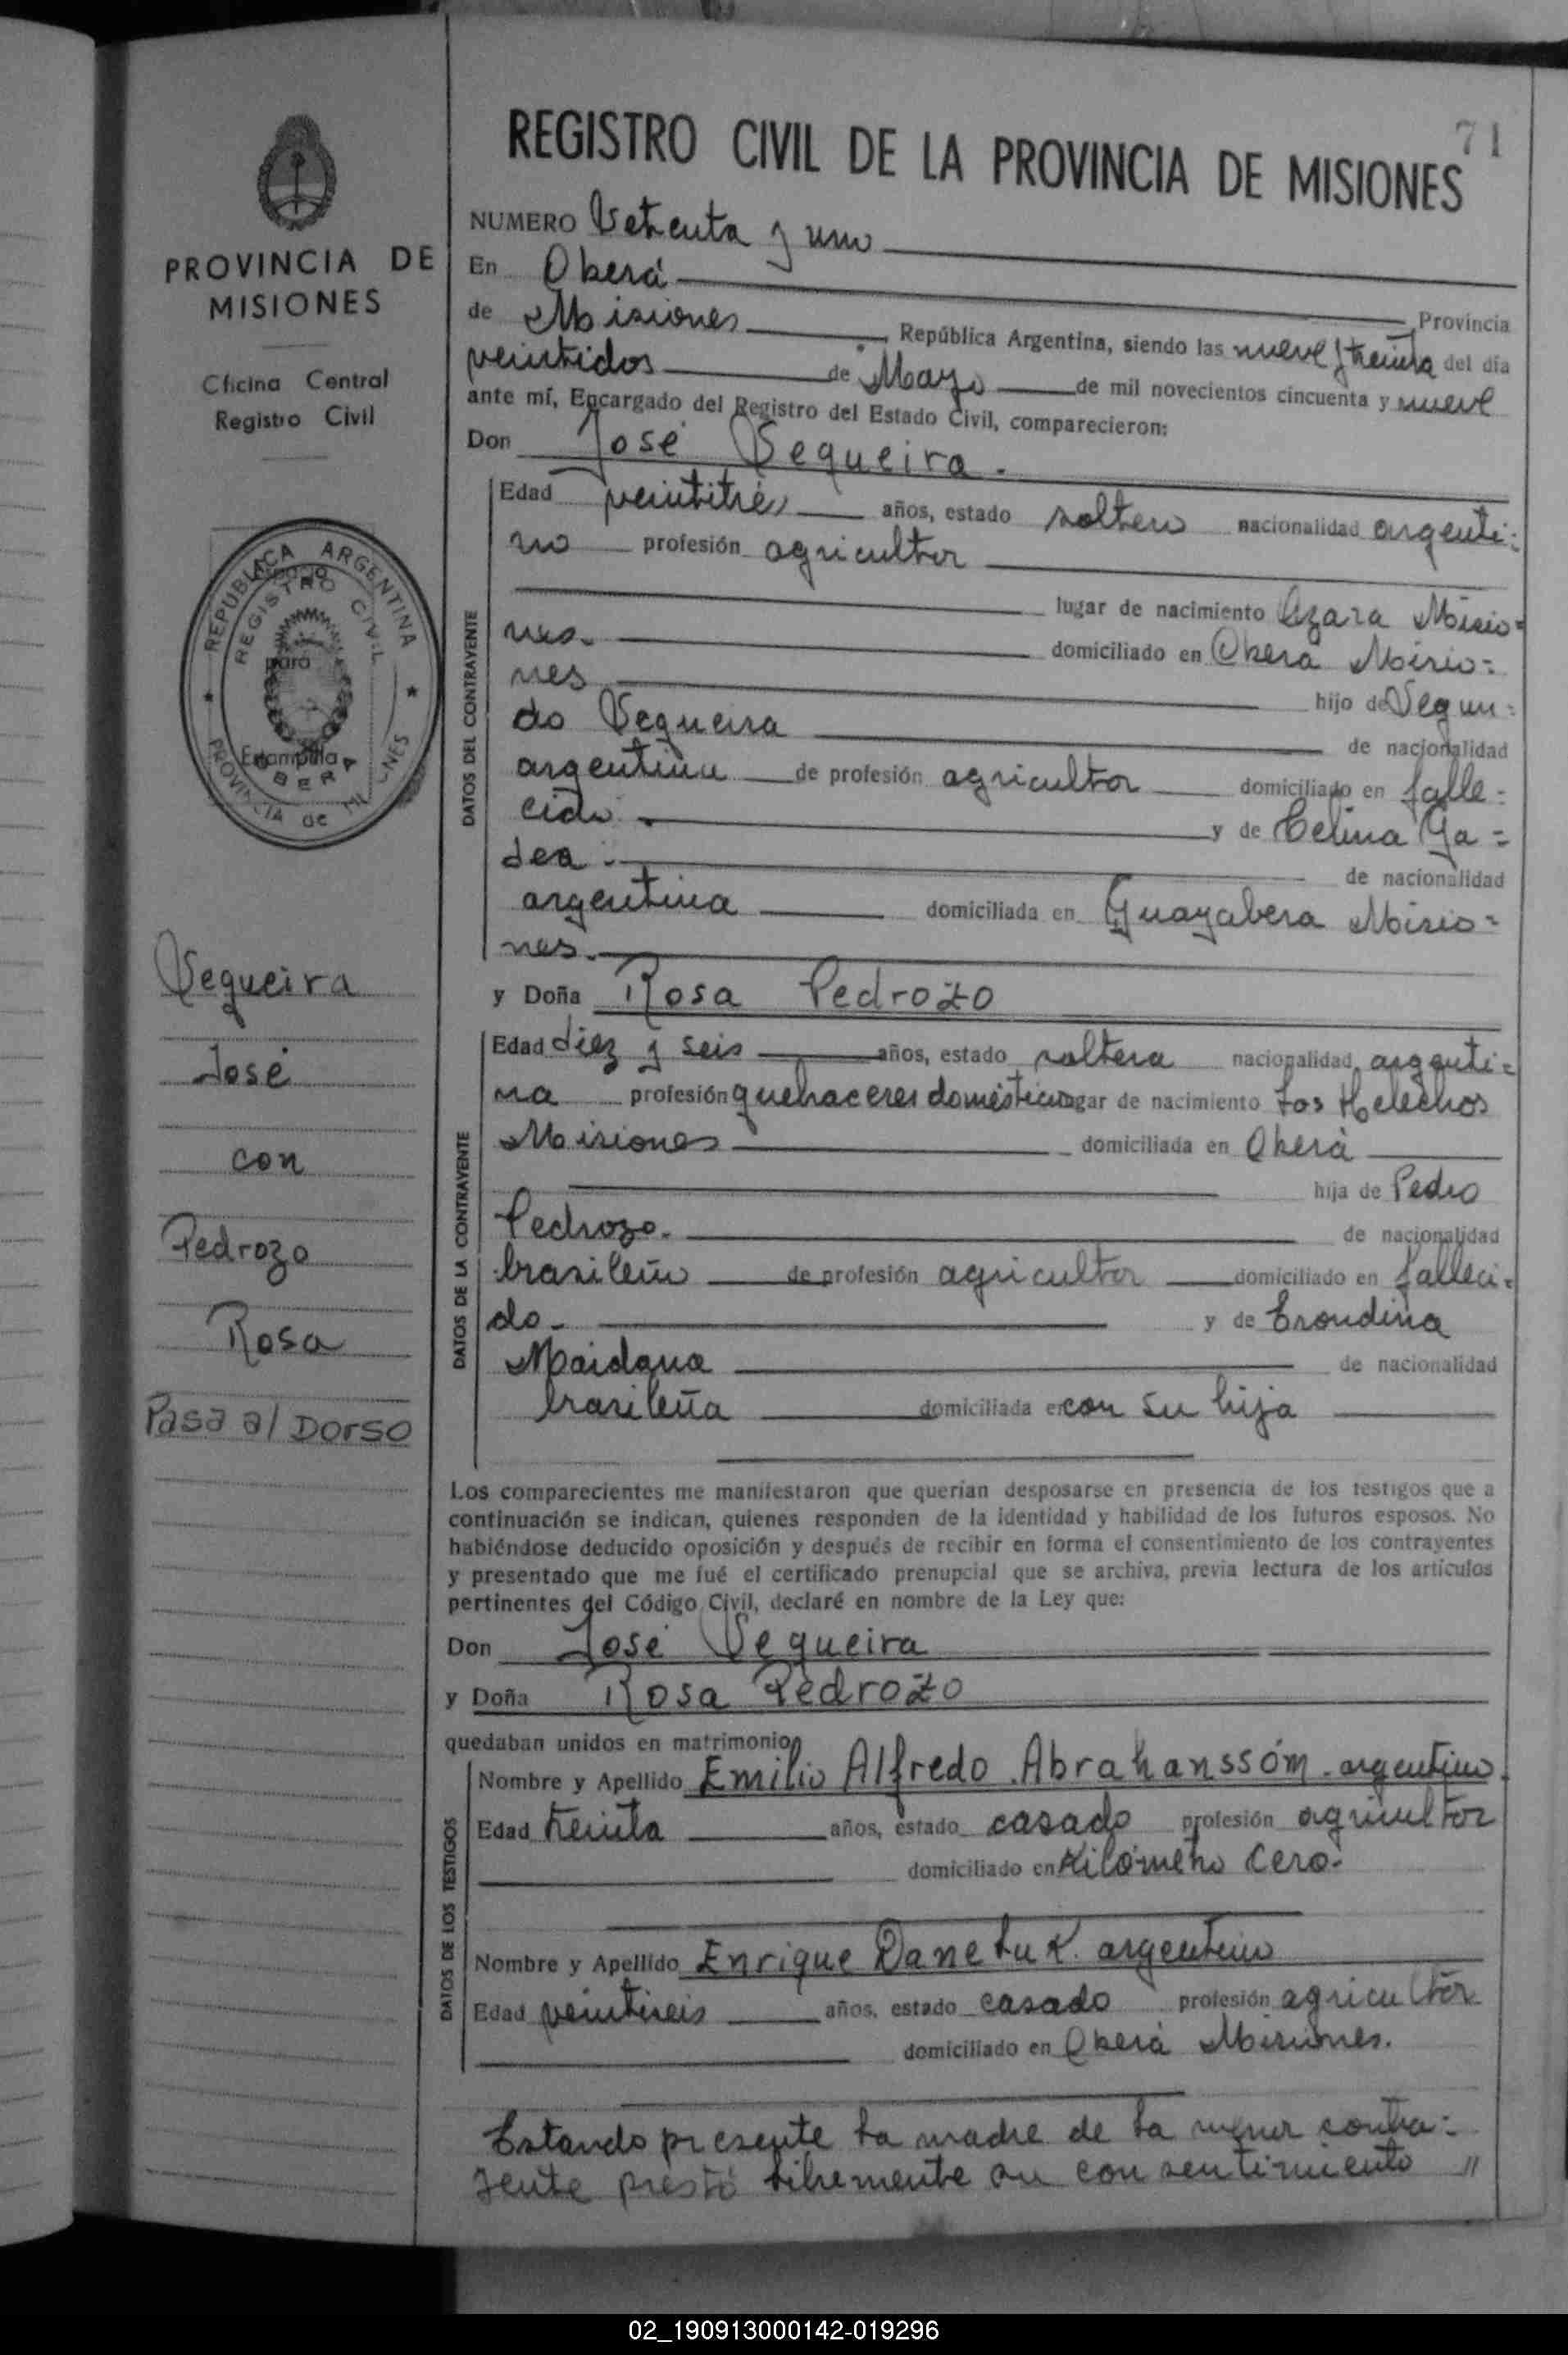 71
REGISTRO CIVIL DE LA PROVINCIA DE MISIONES
PROVINCIA DE
MISIONES
Oficina Central
Registro Civil
REPUBLICA ARGENTINA
REGISTRO CIVIL
Espacio
para
Estampilla
OBERA
PROVINCIA de MISIONES
Sequeira
José
con
Pedrozo
Rosa
Pasa al Dorso
NUMERO Setenta y uno
En Oberá Provincia
de Misiones República Argentina, siendo las nueve y treinta del día
veintidos de Mayo de mil novecientos cincuenta y nueve
ante mí, Encargado del Registro del Estado Civil, comparecieron:
Don José Sequeira.
DATOS DEL CONTRAYENTE
Edad veintitrés años, estado soltero nacionalidad argenti=
no profesión agricultor
lugar de nacimiento Azara Misio=
nes. domiciliado en Oberá Misio=
nes hijo de Segun=
do Sequeira de nacionalidad
argentina de profesión agricultor domiciliado en falle=
cido. y de Celina Ga=
dea. de nacionalidad
argentina domiciliada en Guayabera Misio=
nes.
y Doña Rosa Pedrozo
DATOS DE LA CONTRAYENTE
Edad diez y seis años, estado soltera nacionalidad argenti=
na profesión quehaceres domésticos lugar de nacimiento Los Helechos
Misiones domiciliada en Oberá
hija de Pedro
Pedrozo. de nacionalidad
brasileño de profesión agricultor domiciliado en falleci=
do. y de Erondina
Maidana de nacionalidad
brasileña domiciliada en con su hija
Los comparecientes me manifestaron que querían desposarse en presencia de los testigos que a
continuación se indican, quienes responden de la identidad y habilidad de los futuros esposos. No
habiéndose deducido oposición y después de recibir en forma el consentimiento de los contrayentes
y presentado que me fué el certificado prenupcial que se archiva, previa lectura de los artículos
pertinentes del Código Civil, declaré en nombre de la Ley que:
Don José Sequeira
y Doña Rosa Pedrozo
quedaban unidos en matrimonio
DATOS DE LOS TESTIGOS
Nombre y Apellido Emilio Alfredo Abrahanssóm. argentino.
Edad treinta años, estado casado profesión agricultor
domiciliado en Kilómetro Cero.
Nombre y Apellido Enrique Daneluk. argentino
Edad veintiseis años, estado casado profesión agricultor
domiciliado en Oberá Misiones.
Estando presente la madre de la menor contra=
yente prestó libremente su consentimiento //
02_190913000142-019296